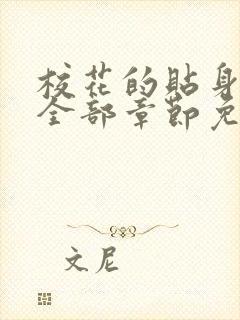 校花的贴身
全部章节免
文尼